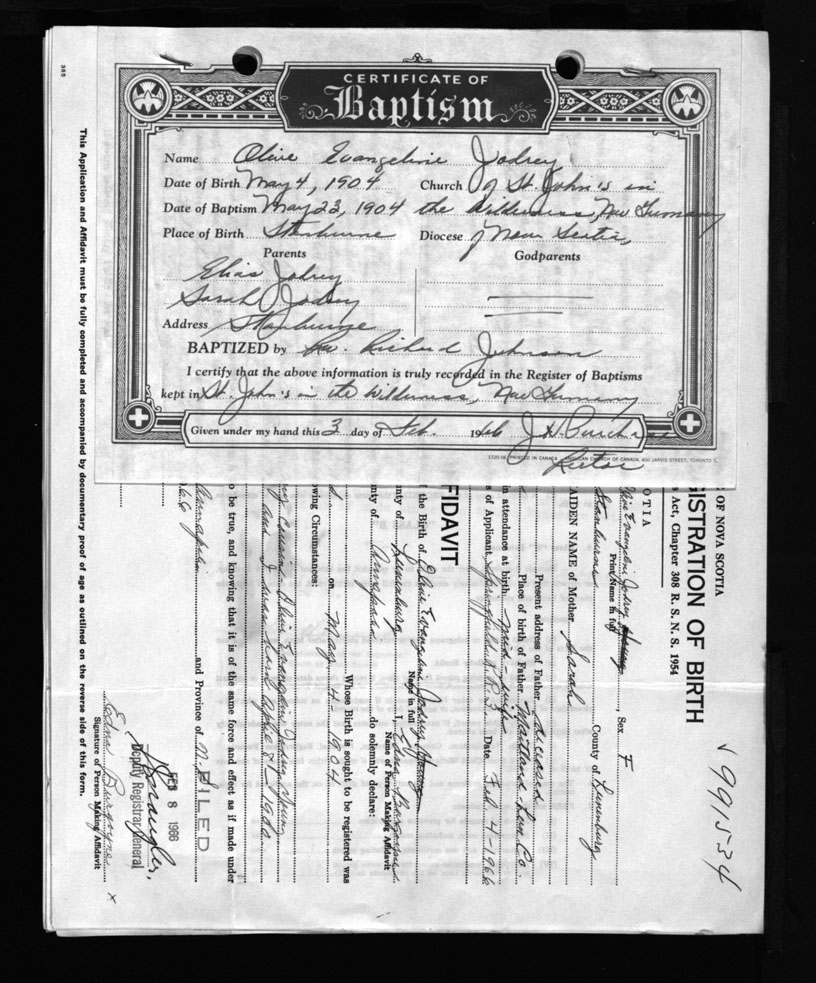 CERTIFICATE OF
Baptism
Name Olive Evangeline Jodrey
Date of Birth May 4, 1904 Church of St. John's in
Date of Baptism May 23, 1904 the Wilderness, New Germany
Place of Birth Stanburne Diocese of Nova Scotia
Parents Godparents
Elias Jodrey
Sarah Jodrey
Address Stanburne
BAPTIZED by Rev. Richard Johnson
I certify that the above information is truly recorded in the Register of Baptisms
kept in St. John's in the Wilderness, New Germany
Given under my hand this 3 day of Feb. 1966 J. H.
Rector
PRINTED IN CANADA CHURCH OF CANADA, 600 JARVIS STREET, TORONTO 5
365
This Application and Affidavit must be fully completed and accompanied by documentary proof of age as outlined on the reverse side of this form.
√ 9915-34
OF NOVA SCOTIA
ISTRATION OF BIRTH
s Act, Chapter 308 R. S. N. S. 1954
OTIA
Evangeline Jodrey , Sex F
Print Name in full
Stanburne County of Lunenburg
AIDEN NAME of Mother Sarah
Present address of Father deceased
Place of birth of Father Maitland Lun. Co.
in attendance at birth mid-wife
s of Applicant Springfield R.R.3 Date Feb. 4-1966
FIDAVIT
the Birth of Evangeline Jodrey
Name in full
nty of Lunenburg I, Edna
Name of Person Making Affidavit
nty of Annapolis do solemnly declare:
Whose Birth is sought to be registered was
on May 4 1904
owing Circumstances:
my cousin Evangeline Jodrey
and I was April 8 1900
o be true, and knowing that it is of the same force and effect as if made under
Annapolis and Province of N.S.
FILED
FEB 8 1966
Deputy Registrar General
Edna
Signature of Person Making Affidavit
x